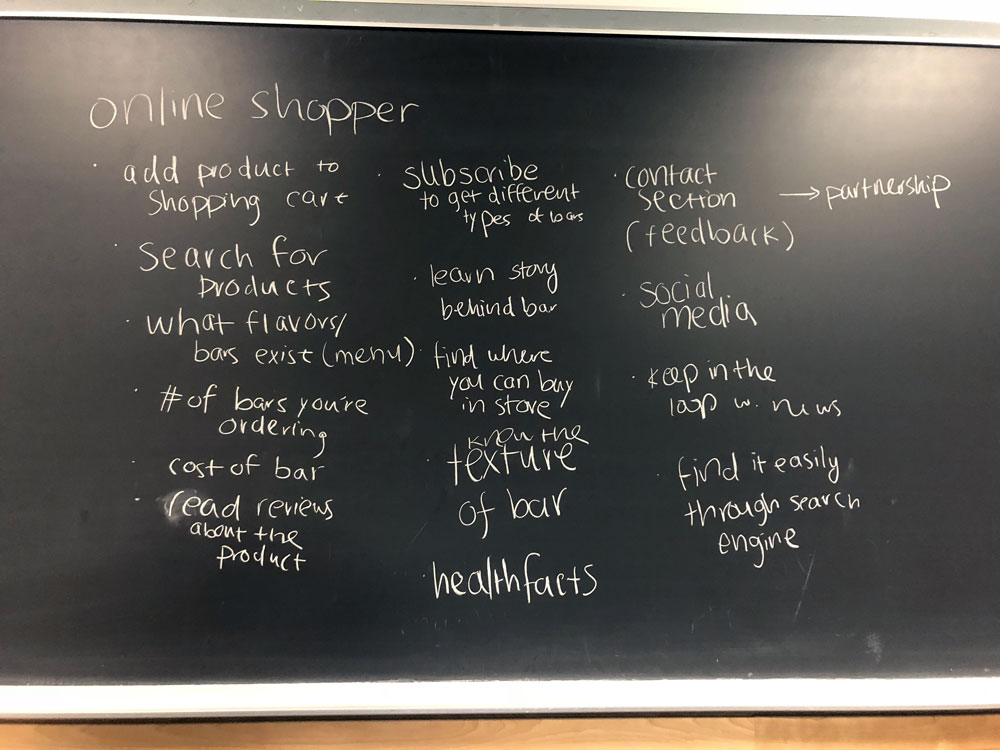 online shopper
· add product to
shopping cart
· search for
products
· what flavors/
bars exist (menu)
· # of bars you're
ordering
· cost of bar
· read reviews
about the
product
· subscribe
to get different
types of bars
· learn story
behind bar
· find where
you can buy
in store
· know the
texture
of bar
· healthfacts
· contact
section → partnership
(feedback)
· social
media
· keep in the
loop w. news
· find it easily
through search
engine